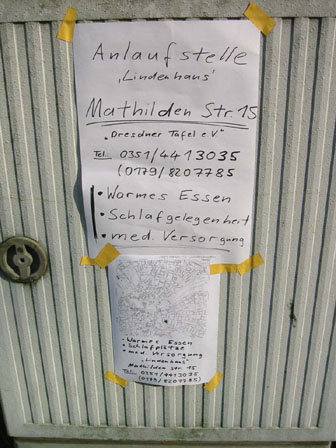 Anlaufstelle
„Lindenhaus"
Mathilden Str. 15
„Dresdner Tafel e.V"
Tel. 0351/4413035
(0179/8207785
• Warmes Essen
• Schlafgelegenheit
• med. Versorgung
• Warmes Essen
• Schlafplätze
• med. Versorgung
„Lindenhaus"
Mathilden str. 15
Tel. 0351/4413035
(0179/8207785)